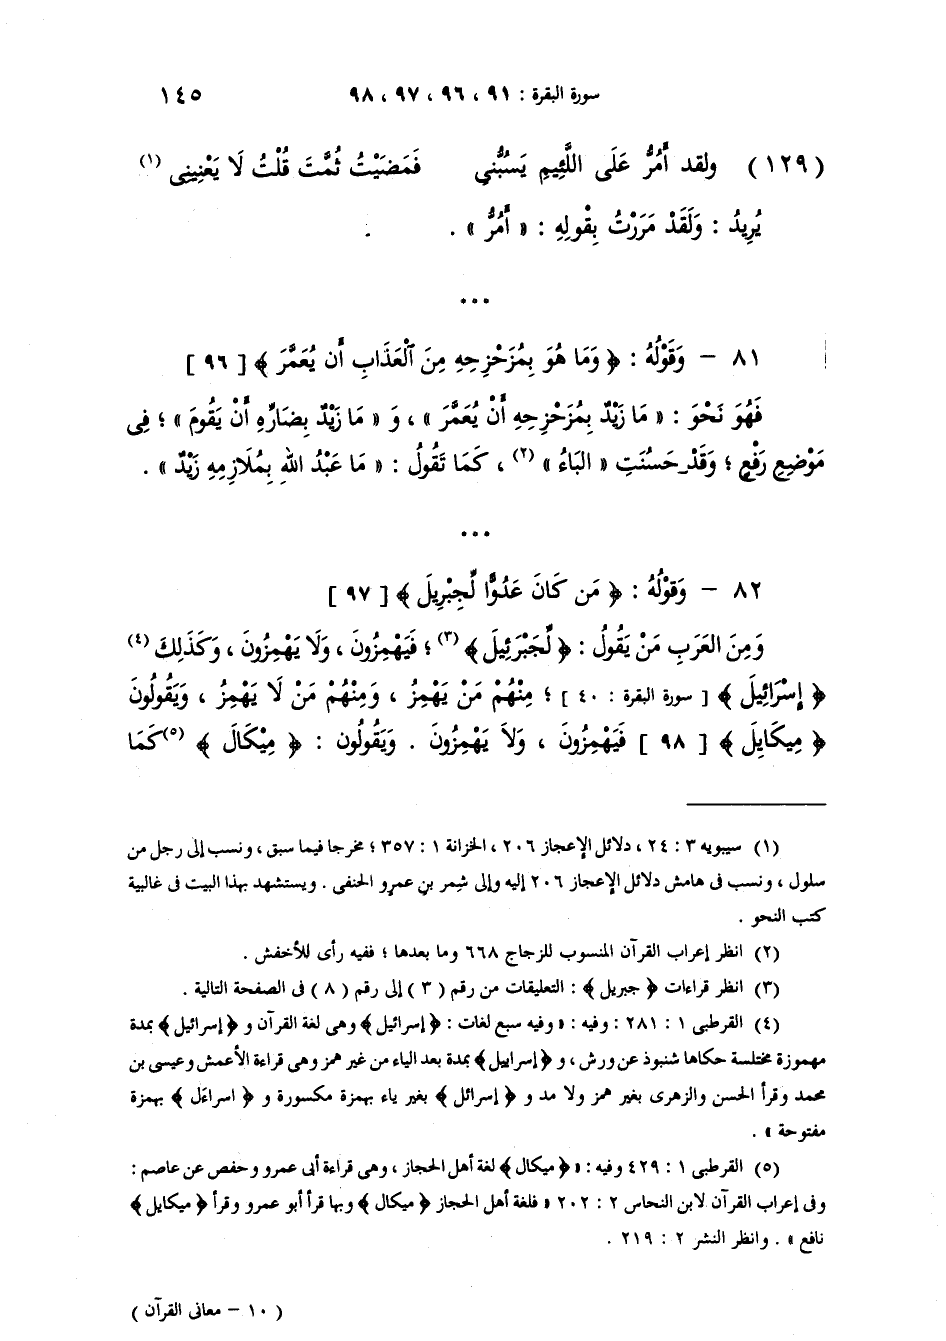 سورة البقرة : ٩١ ، ٩٦ ، ٩٧ ، ٩٨ ١٤٥
(١٢٩) ولقد أَمُرُّ عَلَى اللَّئِيمِ يَسُبُّنِي فَمَضَيْتُ ثُمَّتَ قُلْتُ لَا يَعْنِينِى (١)
يُرِيدُ : وَلَقَدْ مَرَرْتُ بِقولِهِ : « أَمُرُّ » .
• • •
٨١ – وَقَوْلُهُ : ﴿ وَمَا هُوَ بِمُزَحْزِحِهِ مِنَ ٱلْعَذَابِ أَن يُعَمَّرَ ﴾ [ ٩٦ ]
فَهُوَ نَحْوَ : « مَا زَيْدٌ بِمُزَحْزِحِهِ أَنْ يُعَمَّرَ » ، وَ « مَا زَيْدٌ بِضَارِّهِ أَنْ يَقُومَ » ؛ فِى
مَوْضِعِ رَفْعٍ ؛ وَقَدْ حَسُنَتِ « البَاءُ » (٢) ، كَمَا تَقُولُ : « مَا عَبْدُ اللهِ بِمُلَازِمِهِ زَيْدٌ » .
• • •
٨٢ – وَقَوْلُهُ : ﴿ مَن كَانَ عَدُوًّا لِّجِبْرِيلَ ﴾ [ ٩٧ ]
وَمِنَ العَرَبِ مَنْ يَقُولُ : ﴿ لِّجَبْرَئِيلَ ﴾ (٣) ؛ فَيَهْمِزُونَ ، وَلَا يَهْمِزُونَ ، وَكَذَلِكَ (٤)
﴿ إِسْرَائِيلَ ﴾ [ سورة البقرة : ٤٠ ] ؛ مِنْهُمْ مَنْ يَهْمِزُ ، وَمِنْهُمْ مَنْ لَا يَهْمِزُ ، وَيَقُولُونَ
﴿ مِيكَايِلَ ﴾ [ ٩٨ ] فَيَهْمِزُونَ ، وَلاَ يَهْمِزُونَ . وَيَقُولُون : ﴿ مِيْكَالَ ﴾ (٥) كَمَا
(١) سيبويه ٣ : ٢٤ ، دلائل الإعجاز ٢٠٦ ، الخزانة ١ : ٣٥٧ ؛ مخرجا فيما سبق ، ونسب إلى رجل من
سلول ، ونسب فى هامش دلائل الإعجاز ٢٠٦ إليه وإلى شِمر بنِ عمرو الحنفى . ويستشهد بهذا البيت فى غالبية
كتب النحو .
(٢) انظر إعراب القرآن المنسوب للزجاج ٦٦٨ وما بعدها ؛ ففيه رأى للأخفش .
(٣) انظر قراءات ﴿ جبريل ﴾ : التعليقات من رقم ( ٣ ) إلى رقم ( ٨ ) فى الصفحة التالية .
(٤) القرطبى ١ : ٢٨١ : وفيه : « وفيه سبع لغات : ﴿ إسرائيل ﴾ وهى لغة القرآن و ﴿ إسرائيل ﴾ بمدة
مهموزة مختلسة حكاها شنبوذ عن ورش ، و ﴿ إسراييل ﴾ بمدة بعد الياء من غير همز وهى قراءة الأعمش وعيسى بن
محمد وقرأ الحسن والزهرى بغير همز ولا مد و ﴿ إسرائل ﴾ بغير ياء بهمزة مكسورة و ﴿ اسراءَل ﴾ بهمزة
مفتوحة » .
(٥) القرطبى ١ : ٤٢٩ وفيه : « ﴿ ميكال ﴾ لغة أهل الحجاز ، وهى قراءة أبى عمرو وحفص عن عاصم :
وفى إعراب القرآن لابن النحاس ٢ : ٢٠٢ « فلغة أهل الحجاز ﴿ ميكال ﴾ وبها قرأ أبو عمرو وقرأ ﴿ ميكايل ﴾
نافع » . وانظر النشر ٢ : ٢١٩ .
( ١٠ – معانى القرآن )